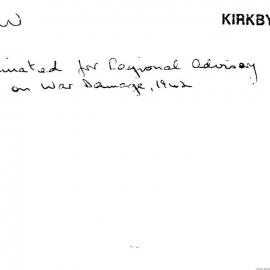 W KIRKBY
inated for Regional Advisory
on War Damage, 1942